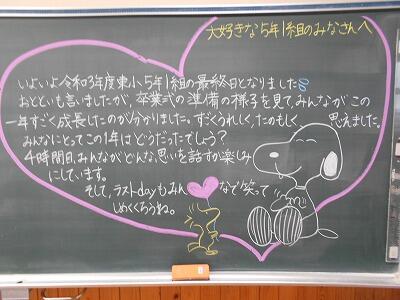 大好きな5年1組のみなさんへ
いよいよ令和3年度東小5年1組の最終日となりました
おとといも言いましたが、卒業式の準備の様子を見て、みんながこの
一年すごく成長したのが分かりました。すごくうれしく、たのもしく 思えました。
みんなにとってこの1年はどうだったでしょう?
4時間目、みんながどんな思いを話すか楽しみ
にしています。
そして、ラストdayもみんなで笑って
しめくくろうね。